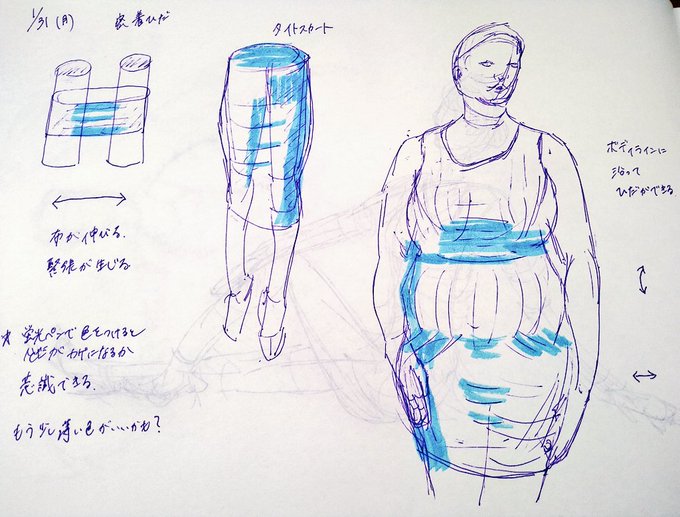 1/31(月) 密着ひだ
タイトスカート
布が伸びる。
緊張が生じる
ボディラインに
沿って
ひだができる
☆ 蛍光ペンで色をつけると
どこがカゲになるか
意識できる。
もう少し薄い色がいいかも?